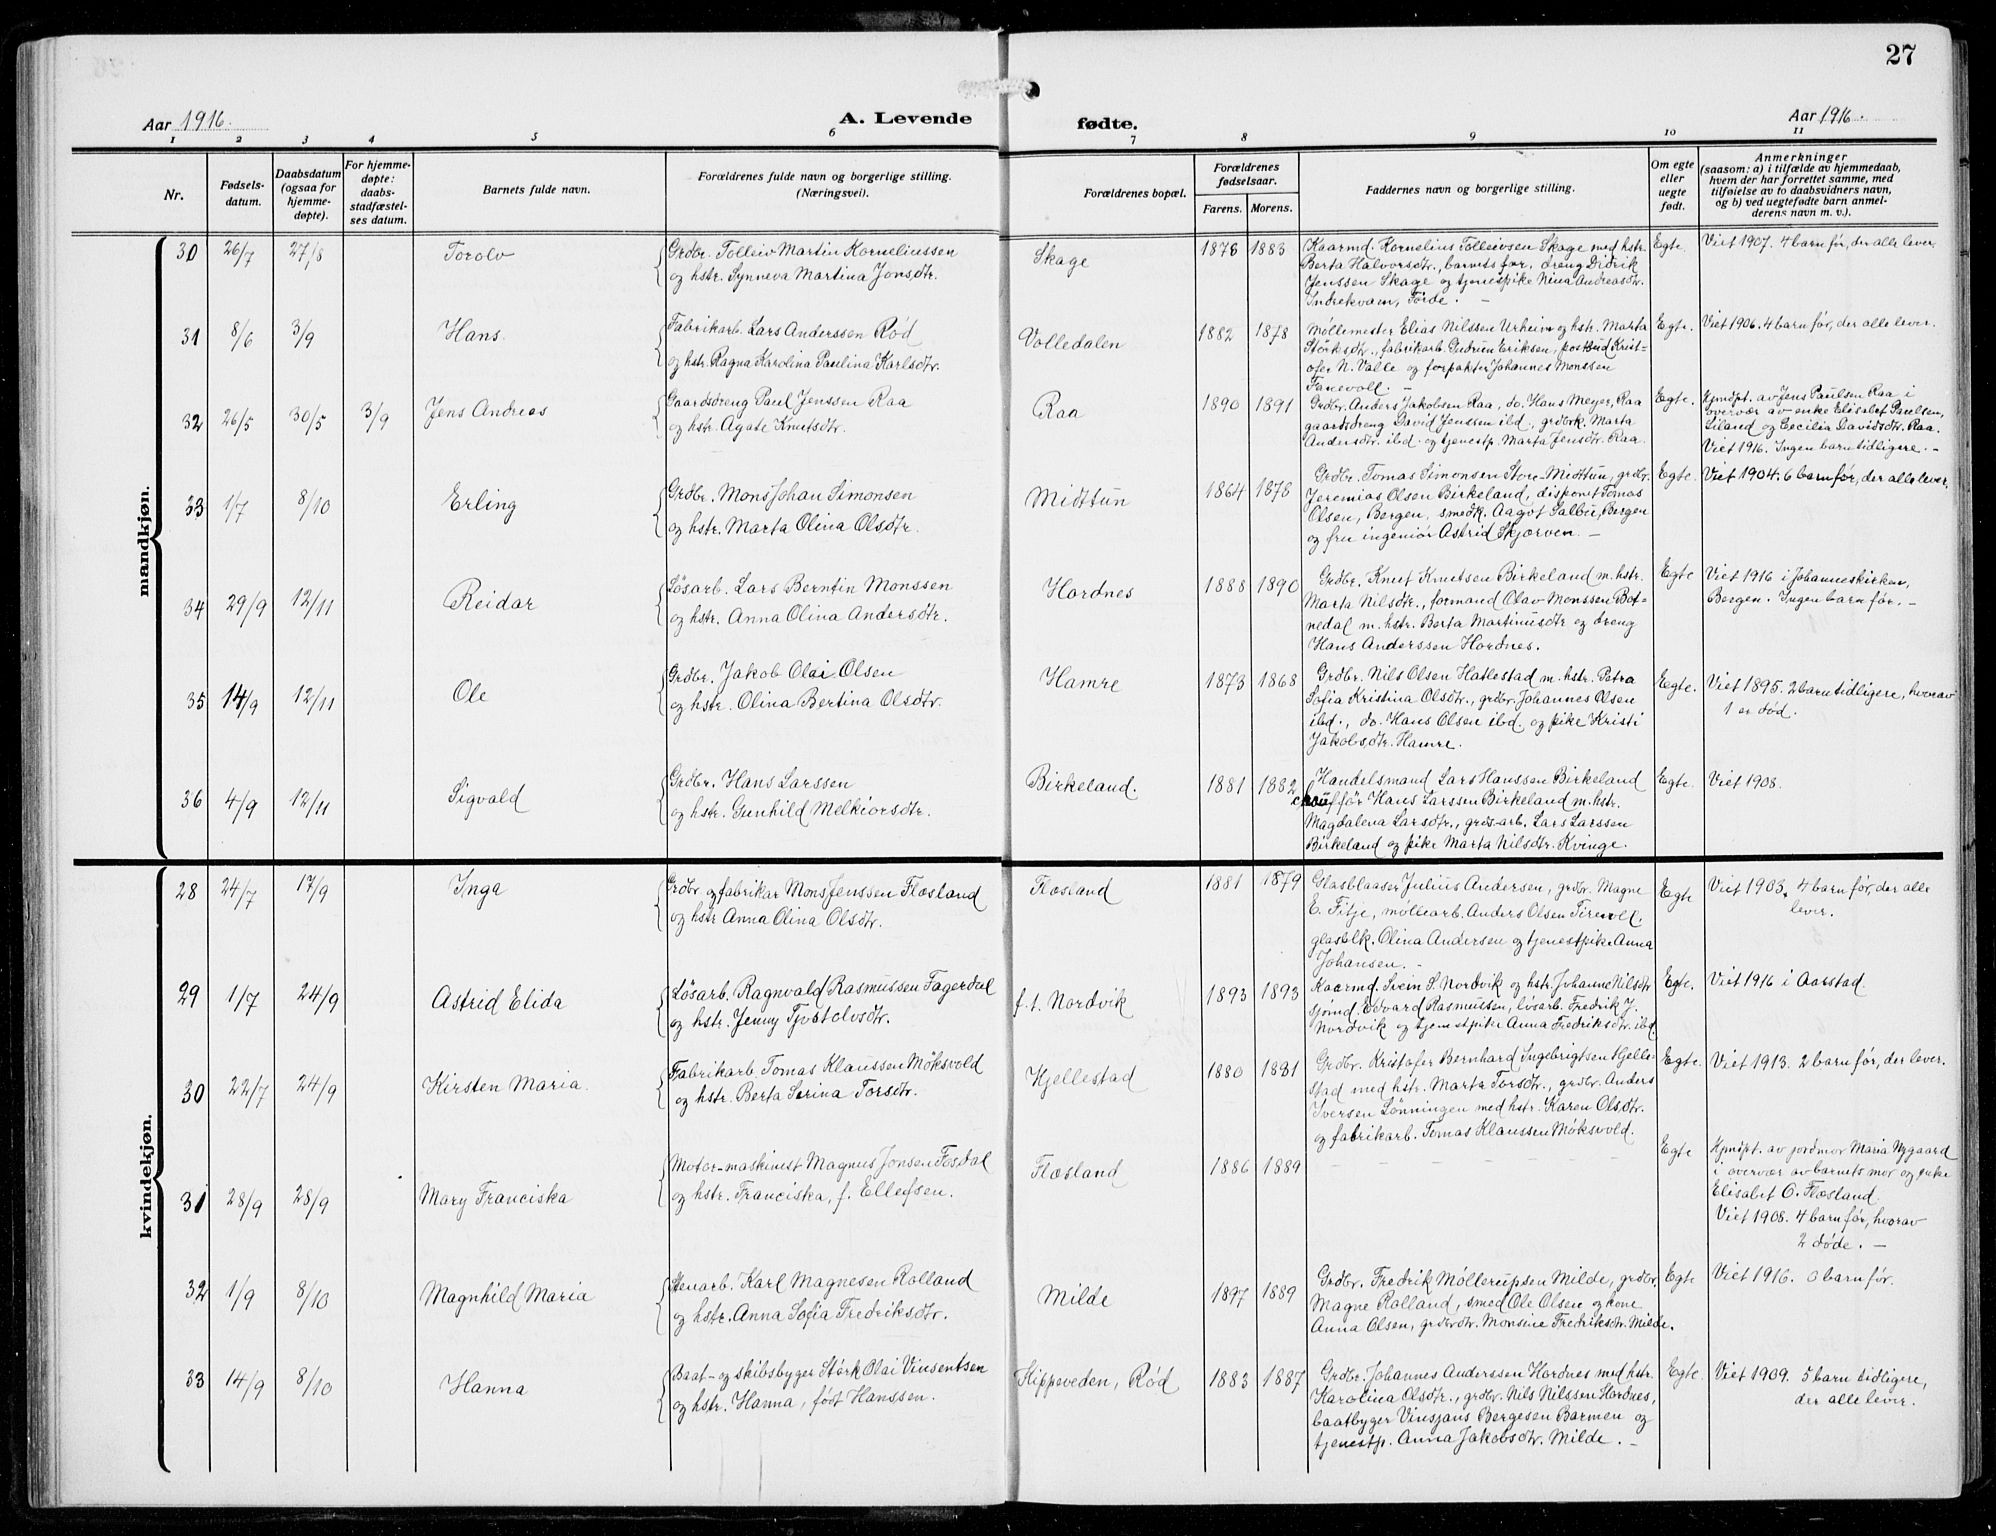 27
Aar 1916.
A. Levende fødte.
Aar 1916.
1 2 3 4 5 6 7 8 9 10 11
Nr.
Fødsels-
datum.
Daabsdatum
(ogsaa for
hjemme-
døpte).
For hjemme-
døpte:
daabs-
stadfæstel-
ses datum.
Barnets fulde navn.
Forældrenes fulde navn og borgerlige stilling.
(Næringsvei).
Forældrenes bopæl.
Forældrenes
fødselsaar.
Farens. Morens.
Faddernes navn og borgerlige stilling.
Om egte
eller
uegte
født.
Anmerkninger
(saasom: a) i tilfælde av hjemmedaab,
hvem der har forrettet samme, med
tilføielse av to daabsvidners navn,
og b) ved uegtefødte barn anmel-
derens navn m. v.).
mandkjøn.
30 26/7 27/8 Torolv
Grdbr. Tolleiv Martin Korneliussen
og hstr. Synneva Martina Jonsdtr.
Skage 1876 1883
Kaarmd. Kornelius Tolleivsen Skage med hstr.
Berta Halvorsdtr., barnets far, dreng Didrik
Jenssen Skage og tjenestpike Nina Andreasdtr.
Indrekvam, Førde. –
Egte.
Viet 1907. 4 barn før, der alle lever.
31 8/6 3/9 Hans.
Fabrikarb. Lars Anderssen Rød
og hstr. Ragna Karolina Paulina Karlsdtr.
Volledalen 1882 1878
Møllemester Elias Nilssen Urheim og hstr. Marta
Størksdtr., fabrikarb. Gudrun Eriksen, postbud Krist-
ofer N. Valle og forpakter Johannes Monssen
Fanevoll. –
Egte.
Viet 1906. 4 barn før, der alle lever.
32 26/5 30/5 3/9 Jens Andreas
Gaardsdreng Paul Jenssen Raa
og hstr. Agate Knutsdtr.
Raa 1890 1891
Grdbr. Anders Jakobsen Raa, do. Hans Meyer, Raa
gaardsdreng David Jenssen ibd., grdbrk. Marta
Andersdtr. ibd. og tjenestp. Marta Jensdtr. Raa.
Egte.
Hjmdpt. av Jens Paulsen Raa i
overvær av enke Elisabet Paulsen,
Liland og Cecilia Davidsdtr. Raa.
Viet 1916. Ingen barn tidligere. –
33 1/7 8/10 Erling
Grdbr. Mons Johan Simonsen
og hstr. Marta Olina Olsdtr.
Midttun 1864 1878
Grdbr. Tomas Simonsen Store-Midttun, grdbr.
Jeremias Olsen Birkeland, disponet Tomas
Olsen, Bergen, smedk. Aagot Salbu, Bergen
og fru ingeniør Astrid Skjærven. –
Egte
Viet 1904. 6 barn før, der alle lever.
34 29/9 12/11 Reidar
Løsarb. Lars Berntin Monssen
og hstr. Anna Olina Andersdtr.
Hordnes 1888 1890
Grdbr. Knut Knutsen Birkeland m. hstr.
Marta Nilsdtr., formand Olav Monssen Bot-
nedal m. hstr. Berta Martinusdtr og dreng
Hans Anderssen Hordnes.
Egte
Viet 1916 i Johanneskirken,
Bergen. Ingen barn før. –
35 14/9 12/11 Ole
Grdbr. Jakob Olai Olsen
og hstr. Olina Bertina Olsdtr.
Hamre 1873 1868
Grdbr. Nils Olsen Hatlestad m. hstr. Petra
Sofia Kristina Olsdtr., grdbr. Johannes Olsen
ibd., do. Hans Olsen ibd. og pike Kristi
Jakobsdtr. Hamre.
Egte.
Viet 1895. 2 barn tidligere, hvorav
1 er død.
36 4/9 12/11 Sigvald
Grdbr. Hans Larssen
og hstr. Gunhild Melkiorsdtr.
Birkeland. 1881 1882
Handelsmand Lars Hanssen Birkeland
chauffør Hans Larssen Birkeland m. hstr.
Magdalena Larsdtr., grds-arb. Lars Larssen
Birkeland og pike Marta Nilsdtr. Kvinge.
Egte.
Viet 1908.
kvindekjøn.
28 24/7 17/9 Inga
Grdbr og fabrikar Mons Jenssen Flæsland
og hstr Anna Olina Olsdtr.
Flæsland 1881 1879
Glasblaaser Julius Andersen, grdbr. Magne
E. Fitje, møllearb. Anders Olsen Tirevold,
glasblk. Olina Andersen og tjenestpike Anna
Johansen. –
Egte
Viet 1903. 4 barn før, der alle
lever.
29 1/7 24/9 Astrid Elida
Løsarb. Ragnvald Rasmussen Fagerdal
og hstr. Jenny Tjostelvsdtr.
f.t. Nordvik 1893 1893
Kaarmd. Svein S. Nordvik og hstr. Johanne Nilsdtr
sjømd. Edvard Rasmussen, løsarb. Fredrik J.
Nordvik og tjenestpike Anna Fredriksdtr. ibd.
Egte.
Viet 1916 i Aarstad.
30 22/7 24/9 Kirsten Maria.
Fabrikarb. Tomas Klaussen Møksvold
og hstr. Berta Serina Torsdtr.
Hjellestad 1880 1881
Grdbr. Kristofer Bernhard Ingebrigtsen Hjelle-
stad med hstr. Marta Torsdtr., grdbr. Anders
Iversen Lønningen med hstr. Karen Olsdtr.
og fabrikarb. Tomas Klaussen Møksvold.
Egte.
Viet 1913. 2 barn før, der lever.
31 28/9 28/9 Mary Franciska
Motor-maskinist Magnus Jonsen Fosdal
og hstr. Franciska, f. Ellefsen.
Flæsland 1886 1889
– – – – – –
Egte
Hjmdpt. av jordmor Maria Nygaard
i overvær av barnets mor og enke
Elisabet O. Flæsland.
Viet 1908. 4 barn før, hvorav
2 døde. –
32 1/9 8/10 Magnhild Maria
Stenarb. Karl Magnesen Rolland
og hstr. Anna Sofia Fredriksdtr.
Milde 1897 1889
Grdbr. Fredrik Møllerupsen Milde, grdbr.
Magne Rolland, smed Ole Olsen og kone
Anna Olsen, grdbrdtr. Monsine Fredriksdtr. Milde.
Egte
Viet 1916. 0 barn før.
33 14/9 8/10 Hanna
Baat- og skibsbyger Størk Olai Vinsentsen
og hstr. Hanna, født Hanssen.
Hippeveden, Rød 1883 1887
Grdbr. Johannes Anderssen Hordnes med hstr.
Karolina Olsdtr., grdbr. Nils Nilssen Hordnes,
baatbyger Vinsjans Bergesen Barmen og
tjenestp. Anna Jakobsdtr. Milde. –
Egte.
Viet 1909. 5 barn tidligere,
der alle lever.